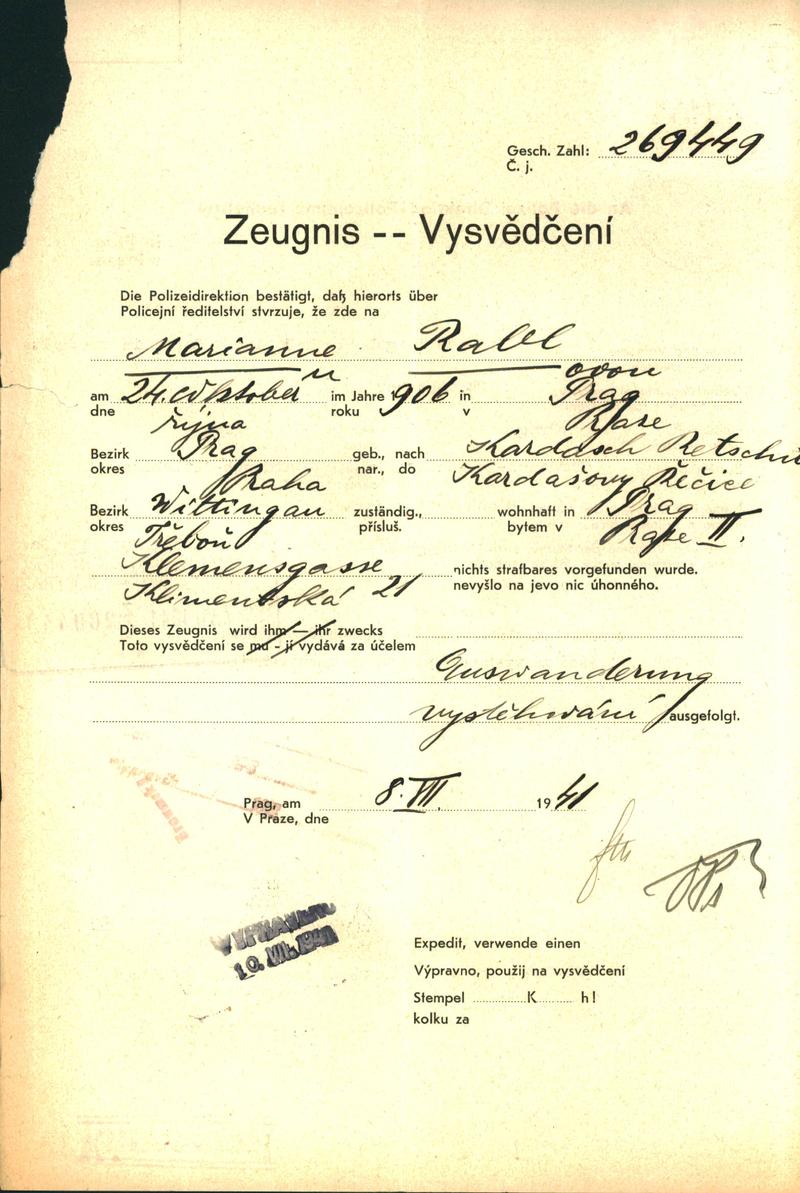 Gesch. Zahl: 269449
Č. j.
Zeugnis -- Vysvědčení
Die Polizeidirektion bestätigt, daß hierorts über
Policejní ředitelství stvrzuje, že zde na
Marianne Rabl
ovou
am 24. Oktober im Jahre 906 in Prag
dne října roku v Praze
Bezirk Prag geb., nach Kardasch Retschi
okres Praha nar., do Kardašovy Řečice
Bezirk Wittingau zuständig., wohnhaft in Prag
okres Třeboň přísluš. bytem v Praze II.
Klemensgasse nichts strafbares vorgefunden wurde.
Klimentská 21 nevyšlo na jevo nic úhonného.
Dieses Zeugnis wird ihm — ihr zwecks
Toto vysvědčení se mu - jí vydává za účelem
Auswanderung
vystěhování ausgefolgt.
Prag, am 8. VII. 1941
V Praze, dne
VYPRAVENO
10. VII. 1941
Expedit, verwende einen
Výpravno, použij na vysvědčení
Stempel K h!
kolku za